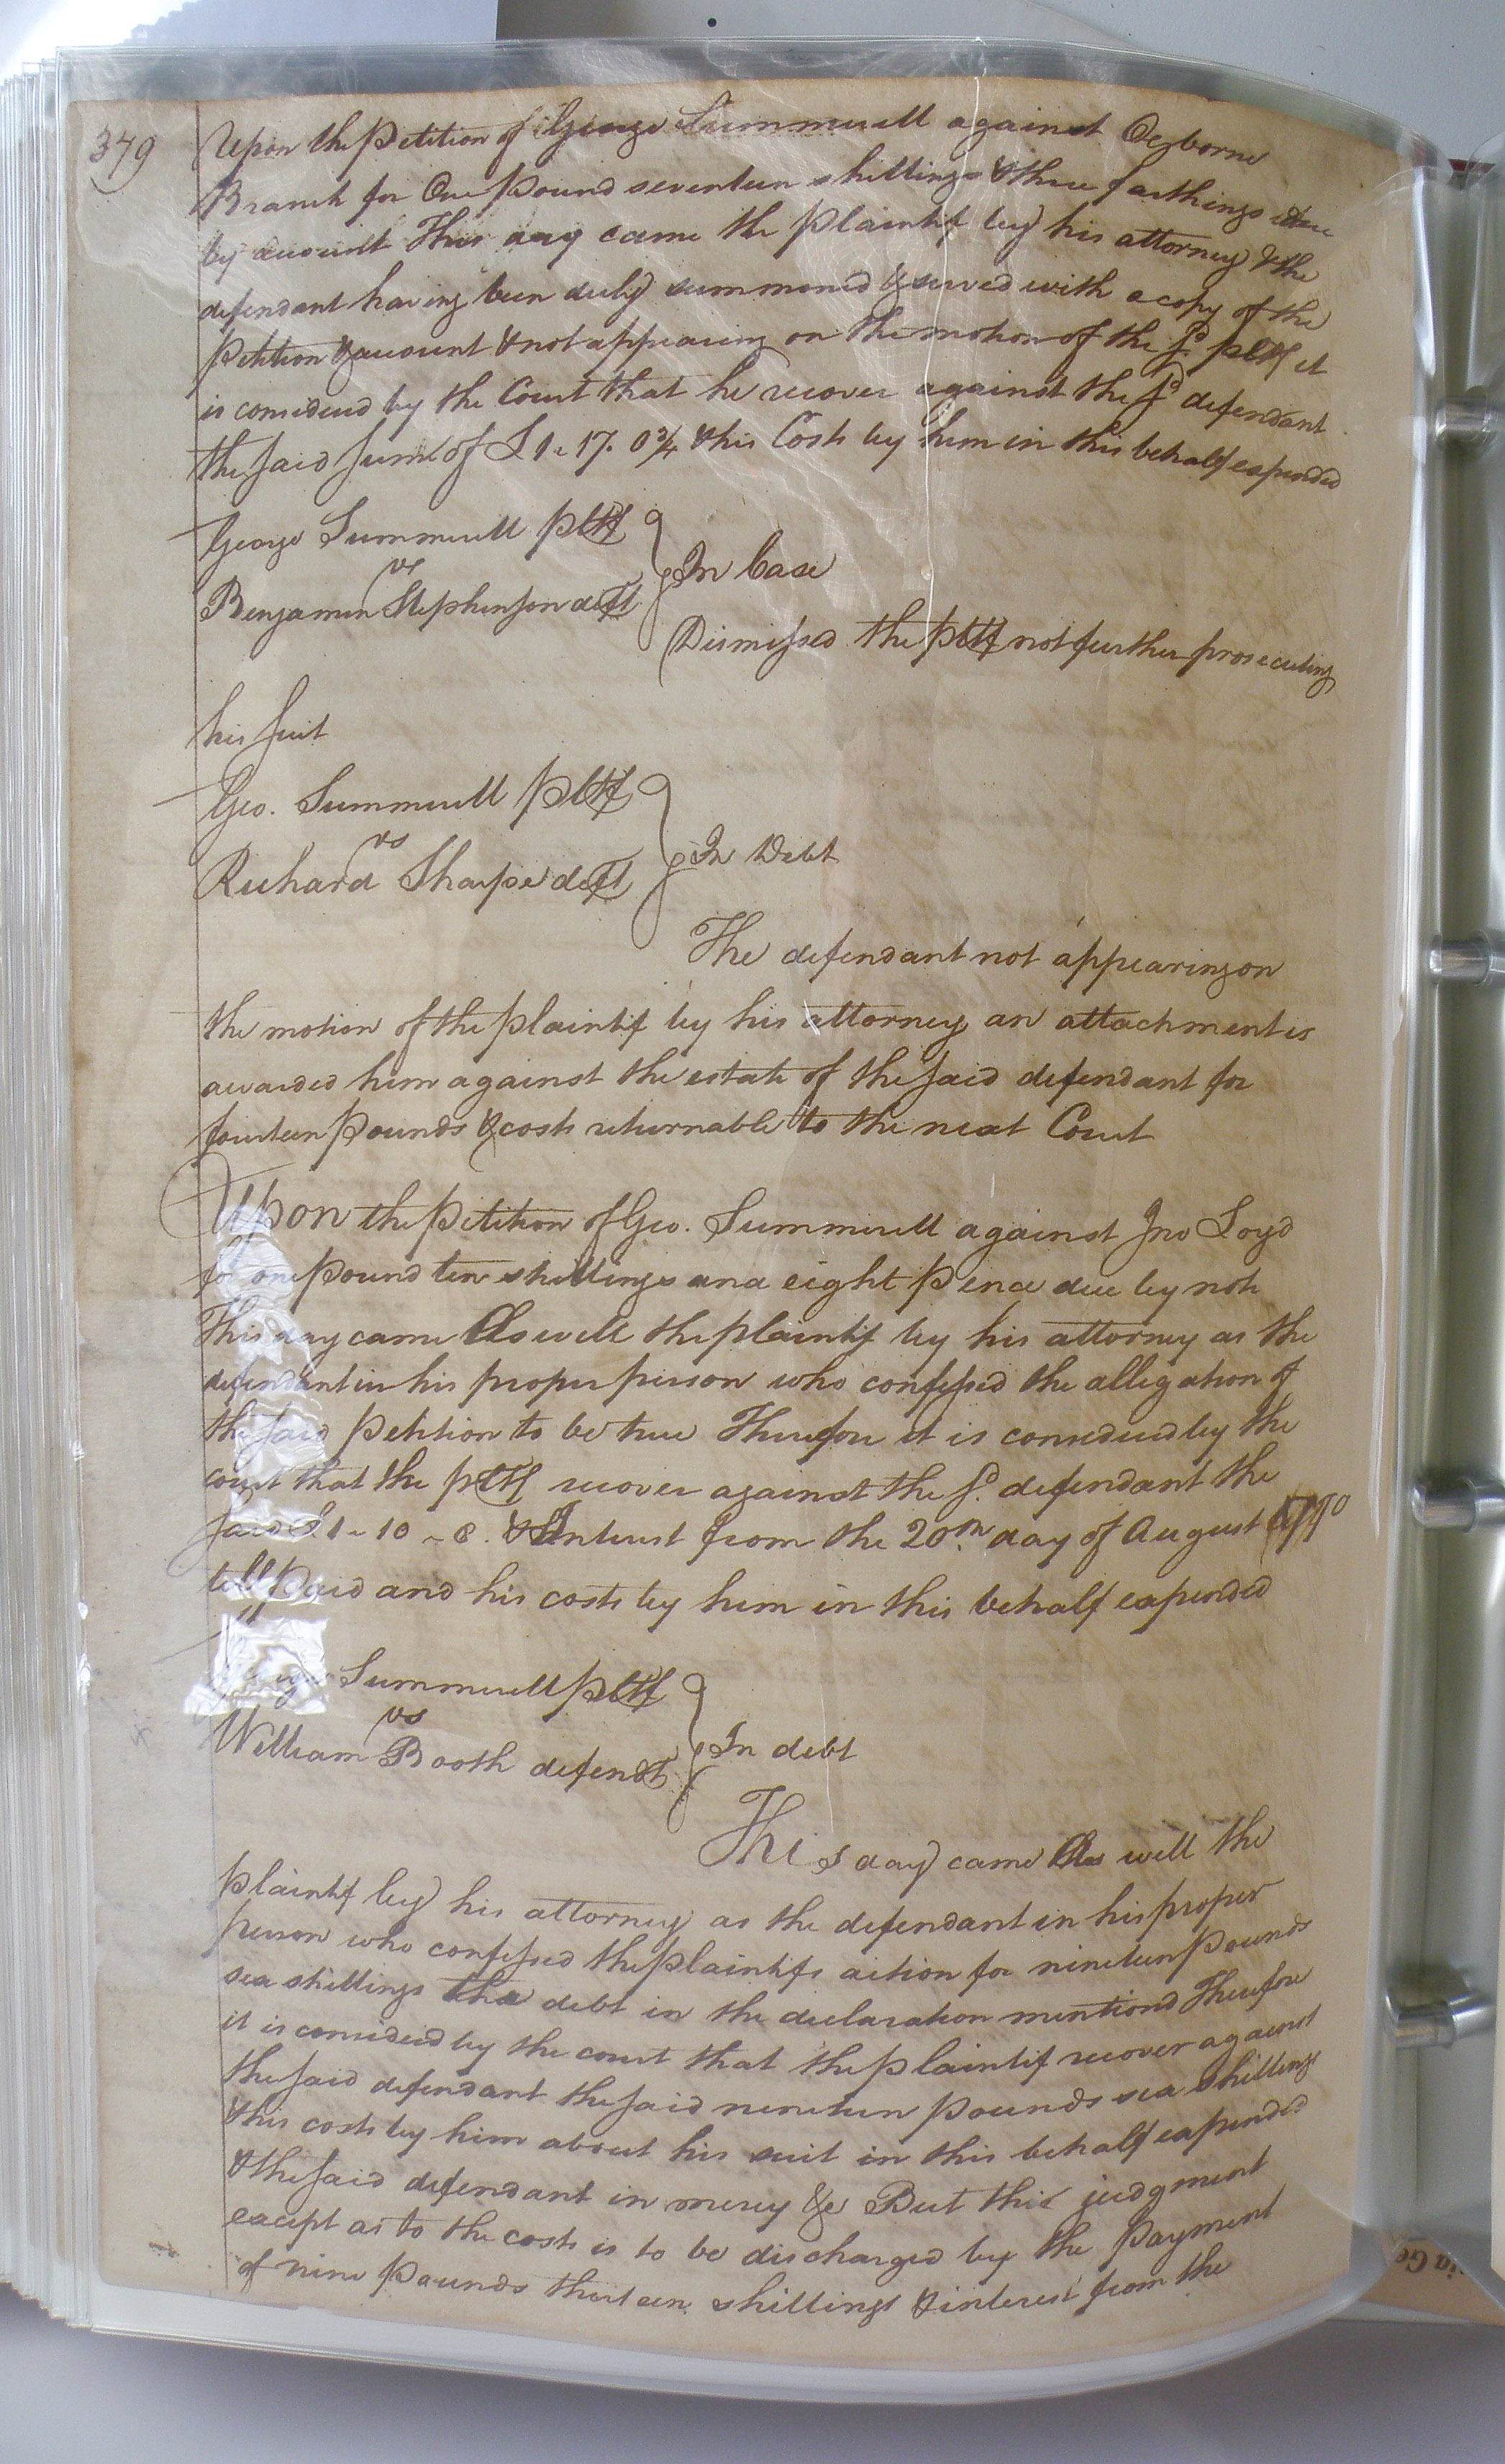 379
Upon the Petition of George Summerell against Ogborne
Branch for One pound seventeen shillings & three farthings due
by account This day came the plaintif by his attorney & the
defendant having been duly summoned & served with a copy of the
Petition & account & not appearing on the motion of the sd pltf it
is considered by the Court that he recover against the sd defendant
the said sum of £ 1.. 17. 0 3/4 & his Costs by him in this behalf expended
George Summerell pltf
vs
In Case
Benjamin Stephenson deft
Dismissed the pltf not further prosecuting
his suit
Geo. Summerell pltf
vs
In Debt
Richard Sharpe deft
The defendant not appearing on
the motion of the plaintif by his attorney an attachment is
awarded him against the estate of the said defendant for
fourteen pounds & costs returnable to the next Court
Upon the Petition of Geo. Summerell against Jno Loyd
for one pound ten shillings and eight pence due by note
This day came As well the plaintif by his attorney as the
defendant in his proper person who confessed the allegation of
the said Petition to be true Therefore it is considered by the
court that the pltf recover against the sd. defendant the
said £ 1 - 10 - 8. & Interest from the 20th day of August 1790
till paid and his costs by him in this behalf expended
Summerell pltf
vs
In debt
William Booth defendt
This day came As well the
plaintif by his attorney as the defendant in his proper
person who confessed the plaintifs action for nineteen pounds
sex shillings the debt in the declaration mentiond Therefore
it is considered by the court that the plaintif recover against
the said defendant the said nineteen pounds sex shillings
& his costs by him about his suit in this behalf expended
& the said defendant in mercy &c But this judgment
except as to the costs is to be discharged by the payment
of nine pounds thirteen shillings & interest from the